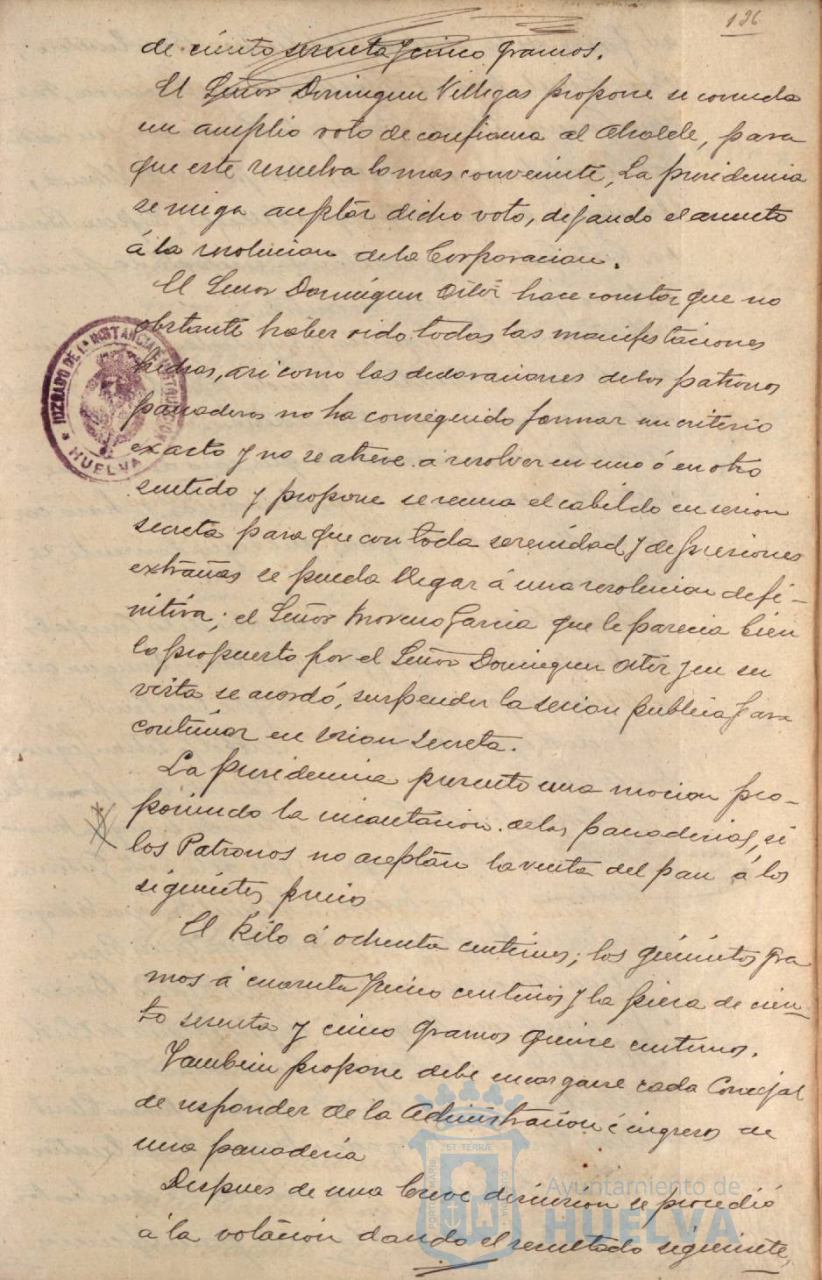 126
de ciento sesenta y cinco gramos.
El Señor Dominguez Villegas propone se conceda
un amplio voto de confianza al Alcalde, para
que este resuelva lo mas conveniente, La presidencia
se niega aceptár dicho voto, dejando el asunto
á la resolucion de la Corporacion.
El Señor Dominguez hace constár que no
obstante haber oido todas las manifestaciones
hechas, asi como las declaraciones de los patronos
panaderos no ha conseguido formar un criterio
exacto y no se atreve á resolver en uno ó en otro
sentido y propone se reuna el cabildo en sesion
secreta para que con toda serenidad y de presiones
extrañas se pueda llegar á una resolucion defi-
nitiva; el Señor Moreno Garcia que le parecia bien
lo propuesto por el Señor Dominguez y en su
vista se acordó, suspender la sesion publica para
continuar en sesion secreta.
La presidencia presento una mocion pro-
poniendo la incautacion de las panaderias, si
los Patronos no aceptán la venta del pan á los
siguientes precios
El Kilo á ochenta centimos; los quinientos gra
mos á cuarenta y cinco centimos y la pieza de cien-
to sesenta y cinco gramos quince centimos.
Tambien propone debe encargarse cada Concejal
de responder de la Administracion é ingresos de
una panaderia
Despues de una breve discusion se procedió
á la votación dando el resultado siguiente,
JUZGADO DE 1ª INSTANCIA E INSTRUCCION
HUELVA
Ayuntamiento de
HUELVA